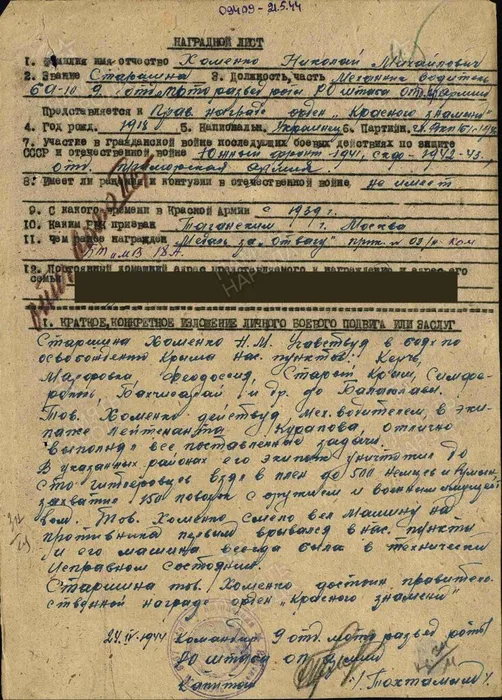 09409 - 21.5.44
НАГРАДНОЙ ЛИСТ
1. Фамилия имя отчество Хоменко Николай Михайлович
2. Звание Старшина 3. Должность, часть Механик водитель
9 отд. мото развед роты РО штаба отд. Армии
Представляется к Прав. награде орден „Красного знамени"
4. Год рожд. 1918 5. Национальн. Украинец 6. Партийн.
7. Участие в гражданской войне последующих боевых действиях по защите
СССР и отечественной войне Южный фронт - 1941, скф - 1942-43
отд. приморская армия.
8. Имеет ли ранения и контузии в отечественной войне не имеет
9. С какого времени в Красной Армии с 1939 г.
10. Каким РВК призван Таганским г. Москва
11. Чем ранее награжден Медаль за „Отвагу"
12. Постоянный домашний адрес представляемого к награждению и адрес его
семьи
1. КРАТКОЕ, КОНКРЕТНОЕ ИЗЛОЖЕНИЕ ЛИЧНОГО БОЕВОГО ПОДВИГА ИЛИ ЗАСЛУГ
Старшина Хоменко Н.М. Участвуя в боях по
освобождению Крыма нас. пунктов: Керчь,
Марфовка Феодосия, Старый Крым, Симфе-
рополь Бахчисарай и др. до Балаклавы.
Тов. Хоменко действуя мех. водителем, в эки-
паже Лейтенанта Курапова, отлично
выполнял все поставленные задачи.
В указанных районах его экипаж уничтожил до
сто гитлеровцев взял в плен до 500 немцев и румын,
захватил 150 повозок с оружием и военным имущест-
вом. Тов. Хоменко смело вел машину на
противника первым врывался в нас. пункты
и его машина всегда была в технически
исправном состоянии.
Старшина тов. Хоменко достоин правитель-
ственной награде орден „Красного знамени"
24.IV.1944 Командир 9 отд. мото развед роты
РО штаба
Капитан /Тохтамыш/